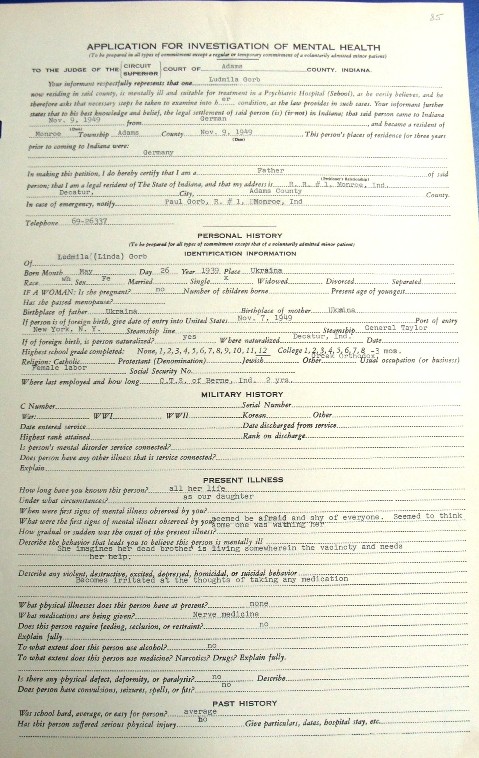 85
APPLICATION FOR INVESTIGATION OF MENTAL HEALTH
(To be prepared in all types of commitment except a regular or temporary commitment of a voluntarily admitted minor patient)
TO THE JUDGE OF THE CIRCUIT SUPERIOR COURT OF Adams COUNTY, INDIANA.
Your informant respectfully represents that one Ludmila Gorb
now residing in said county, is mentally ill and suitable for treatment in a Psychiatric Hospital (School), as he verily believes, and he
therefore asks that necessary steps be taken to examine into h er condition, as the law provides in such cases. Your informant further
states that to his best knowledge and belief, the legal settlement of said person (is) (is not) in Indiana; that said person came to Indiana
Nov. 9, 1949 from German , and became a resident of
(Date)
Monroe Township Adams County Nov. 9, 1949 This person's places of residence for three years
(Date)
prior to coming to Indiana were:
Germany
In making this petition, I do hereby certify that I am a Father of said
(Petitioner's Relationship)
person; that I am a legal resident of The State of Indiana, and that my address is R. R. # 1, Monroe, Ind.
Decatur, City, Adams County County.
In case of emergency, notify Paul Gorb, R. # 1, Monroe, Ind
Telephone 69-26337
PERSONAL HISTORY
(To be prepared for all types of commitment except that of a voluntarily admitted minor patient)
IDENTIFICATION INFORMATION
Of Ludmila (Linda) Gorb
Born Month May Day 26 Year 1939 Place Ukraina
Race Wh Sex Fe Married Single x Widowed Divorced Separated
IF A WOMAN: Is she pregnant? no Number of children borne Present age of youngest
Has she passed menopause?
Birthplace of father Ukraina Birthplace of mother Ukraina
If person is of foreign birth, give date of entry into United States Nov. 7, 1949 Port of entry
New York, N. Y. Steamship line Steamship General Taylor
If of foreign birth, is person naturalized? yes Where naturalized Decatur, Ind. Date
Highest school grade completed: None, 1, 2, 3, 4, 5, 6, 7, 8, 9, 10, 11, 12 College 1, 2, 3, 4, 5, 6, 7, 8 -3 mos.
Religion: Catholic Protestant (Denomination) Jewish Other Orthodox Usual occupation (or business)
Female labor Social Security No.
Where last employed and how long C.T.S. of Berne, Ind. 2 yrs.
MILITARY HISTORY
C Number Serial Number
War: WWI WWII Korean Other
Date entered service Date discharged from service
Highest rank attained Rank on discharge
Is person's mental disorder service connected?
Does person have any other illness that is service connected?
Explain
PRESENT ILLNESS
How long have you known this person? all her life
Under what circumstances? as our daughter
When were first signs of mental illness observed by you?
What were the first signs of mental illness observed by you? seemed be afreid and shy of everyone. Seemed to think
some one was watching her
How gradual or sudden was the onset of the present illness?
Describe the behavior that leads you to believe this person is mentally ill
She imagines her dead brother is living somewherein the vacincty and needs
her help.
Describe any violent, destructive, excited, depressed, homicidal, or suicidal behavior
Becomes irritated at the thoughts of taking any medication
What physical illnesses does this person have at present? none
What medications are being given? Nerve medicine
Does this person require feeding, seclusion, or restraint? no
Explain fully
To what extent does this person use alcohol? no
To what extent does this person use medicine? Narcotics? Drugs? Explain fully.
Is there any physical defect, deformity, or paralysis? no Describe
Does person have convulsions, seizures, spells, or fits? no
PAST HISTORY
Was school hard, average, or easy for person? average
Has this person suffered serious physical injury no Give particulars, dates, hospital stay, etc.